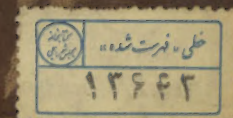 خطی «فهرست شده»
۱۳۶۴۳